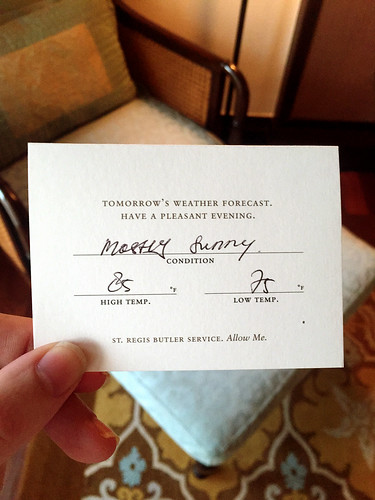 TOMORROW'S WEATHER FORECAST.
HAVE A PLEASANT EVENING.
Mostly Sunny.
CONDITION
85 °F 75 °F
HIGH TEMP. LOW TEMP.
ST. REGIS BUTLER SERVICE. Allow Me.